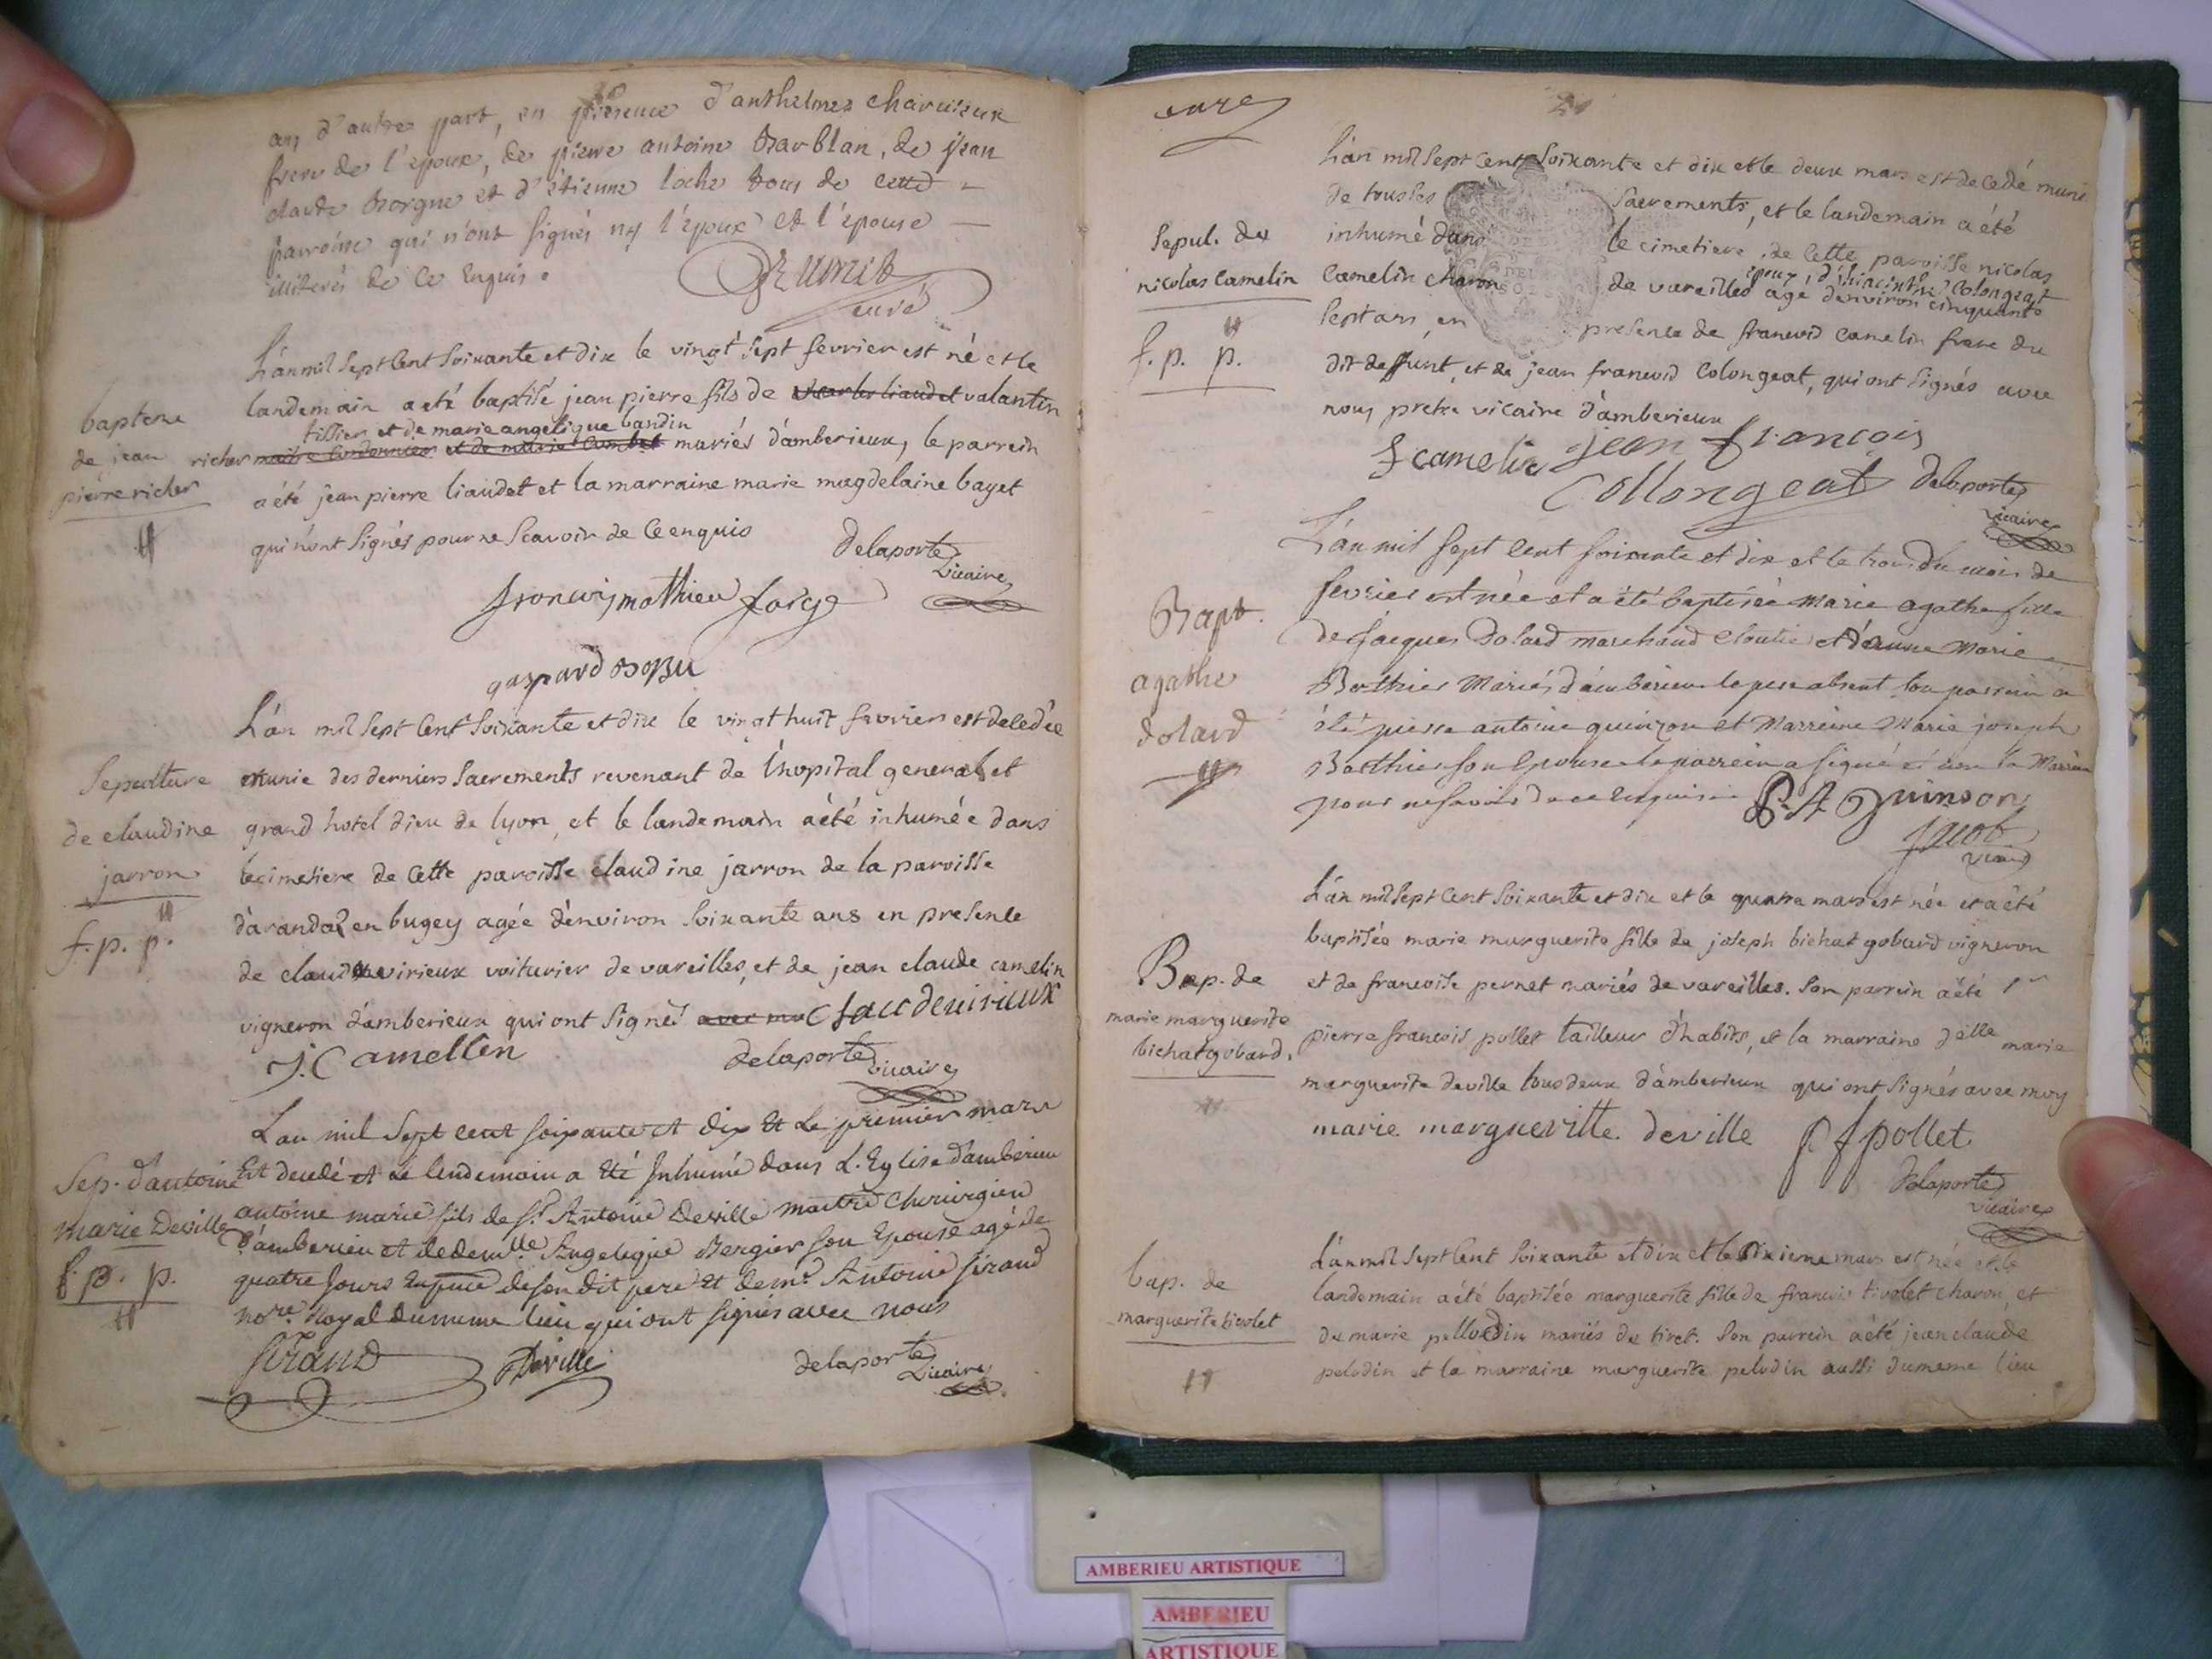 an d'autre part, en presence d'anthelmes charvieux
frere de l'epoux, de pierre antoine Barblan, de jean
claude Borgne et d'étienne loche tous de cette
parroisse qui n'ont signés ny l'époux et l'épouse
illiterés de ce Enquis.
curé
baptene
de jean
pierre richer
L'an mil sept Cent Soixante et dix le vingt sept fevrier est né et le
landemain a eté baptisé jean pierre fils de valantin
tissier et de marie angelique bandin
richer mariés d'amberieux, le parrein
a été jean pierre liaudet et la marraine marie magdelaine bayet
qui n'ont Signés pour ne Scavoir de Ce enquis
Delaporte
Vicaire
francoismathieu farge
gaspard
Sepulture
de claudine
jarron
f. p. p.
L'an mil Sept Cent Soixante et dix le vingt huit fevrier est decedée
munie des derniers Sacrements revenant de L'hopital general et
grand hotel dieu de lyon, et le landemain a été inhumée dans
le cimetiere de Cette paroisse claudine jarron de la paroisse
d'arandas en bugey agée d'environ Soixante ans en presence
de claude virieux voiturier de vareilles, et de jean claude camelin
vigneron d'amberieux qui ont Signés avec moi Claudevirieux
J. Camellin
delaporte
Vicaire
Sep. d'antoine
marie Deville
f. p. p.
L'an mil Sept cent soixante et dix Et Le premier mars
Est decedé et Le lendemain a Eté Inhumé dans L'Eglise d'amberieu
antoine marie fils de Sr. Antoine Deville maitre chirurgien
d'amberieu et de demlle Angelique Bergier son Epouse agé de
quatre Jours En pnce de son dit pere Et de mr. Antoine Sirand
nore. Royal du meme lieu qui ont signés avec nous
Sirand
Deville
delaporte
Vicaire
curé
Sepul. de
nicolas Camelin
f. p. p.
L'an mil Sept Cent Soixante et dix et le deux mars est decedé muni
de tous les Sacrements, et le landemain a été
inhumé dans le cimetiere de Cette paroisse nicolas
epoux d'hiacinthe Colongeat
Camelin charon de vareilles agé d'environ cinquante
Sept ans, en presence de francois camelin frere du
dit deffunt, et de jean francois Colongeat, qui ont Signés avec
nous pretre vicaire d'amberieux
f camelin jean francois
Collongeat
Delaporte
Vicaire
Bapt.
agathe
dolard
L'an mil Sept Cent soixante et dix et le trois du mois de
fevrier est née et a été baptisée Marie agathe fille
de Jacques Dolard marchand Cloutie et d'anne Marie
Berthier Mariés d'ambérieu le pere absent son parrein a
été pierre antoine quinson et Marreine Marie joseph
Berthier son Epouse le parrein a signé et non la Marreine
pour ne savoir de ce enquise
P. A Quinson
Jacob
Vicaire
Bap. de
marie marguerite
bichat gobard.
L'an mil Sept Cent Soixante et dix et le quatre mars est née et a été
baptisée marie marguerite fille de joseph bichat gobard vigneron
et de francoise pernet mariés de vareilles. Son parrein a été Sr
pierre francois pollet tailleur d'habits, et la marraine delle marie
marguerite deville tous deux d'amberieux qui ont Signés avec moy
marie margueritte deville
p f pollet
Delaporte
Vicaire
bap. de
marguerite tivolet
L'an mil Sept Cent Soixante et dix et le Sixieme mars est née et le
landemain a été baptisée marguerite fille de francois tivolet charon, et
de marie pellodin mariés de tiret. Son parrein a été jean claude
pelodin et la marraine marguerite pelodin aussi du meme lieu
AMBERIEU ARTISTIQUE
AMBERIEU
ARTISTIQUE